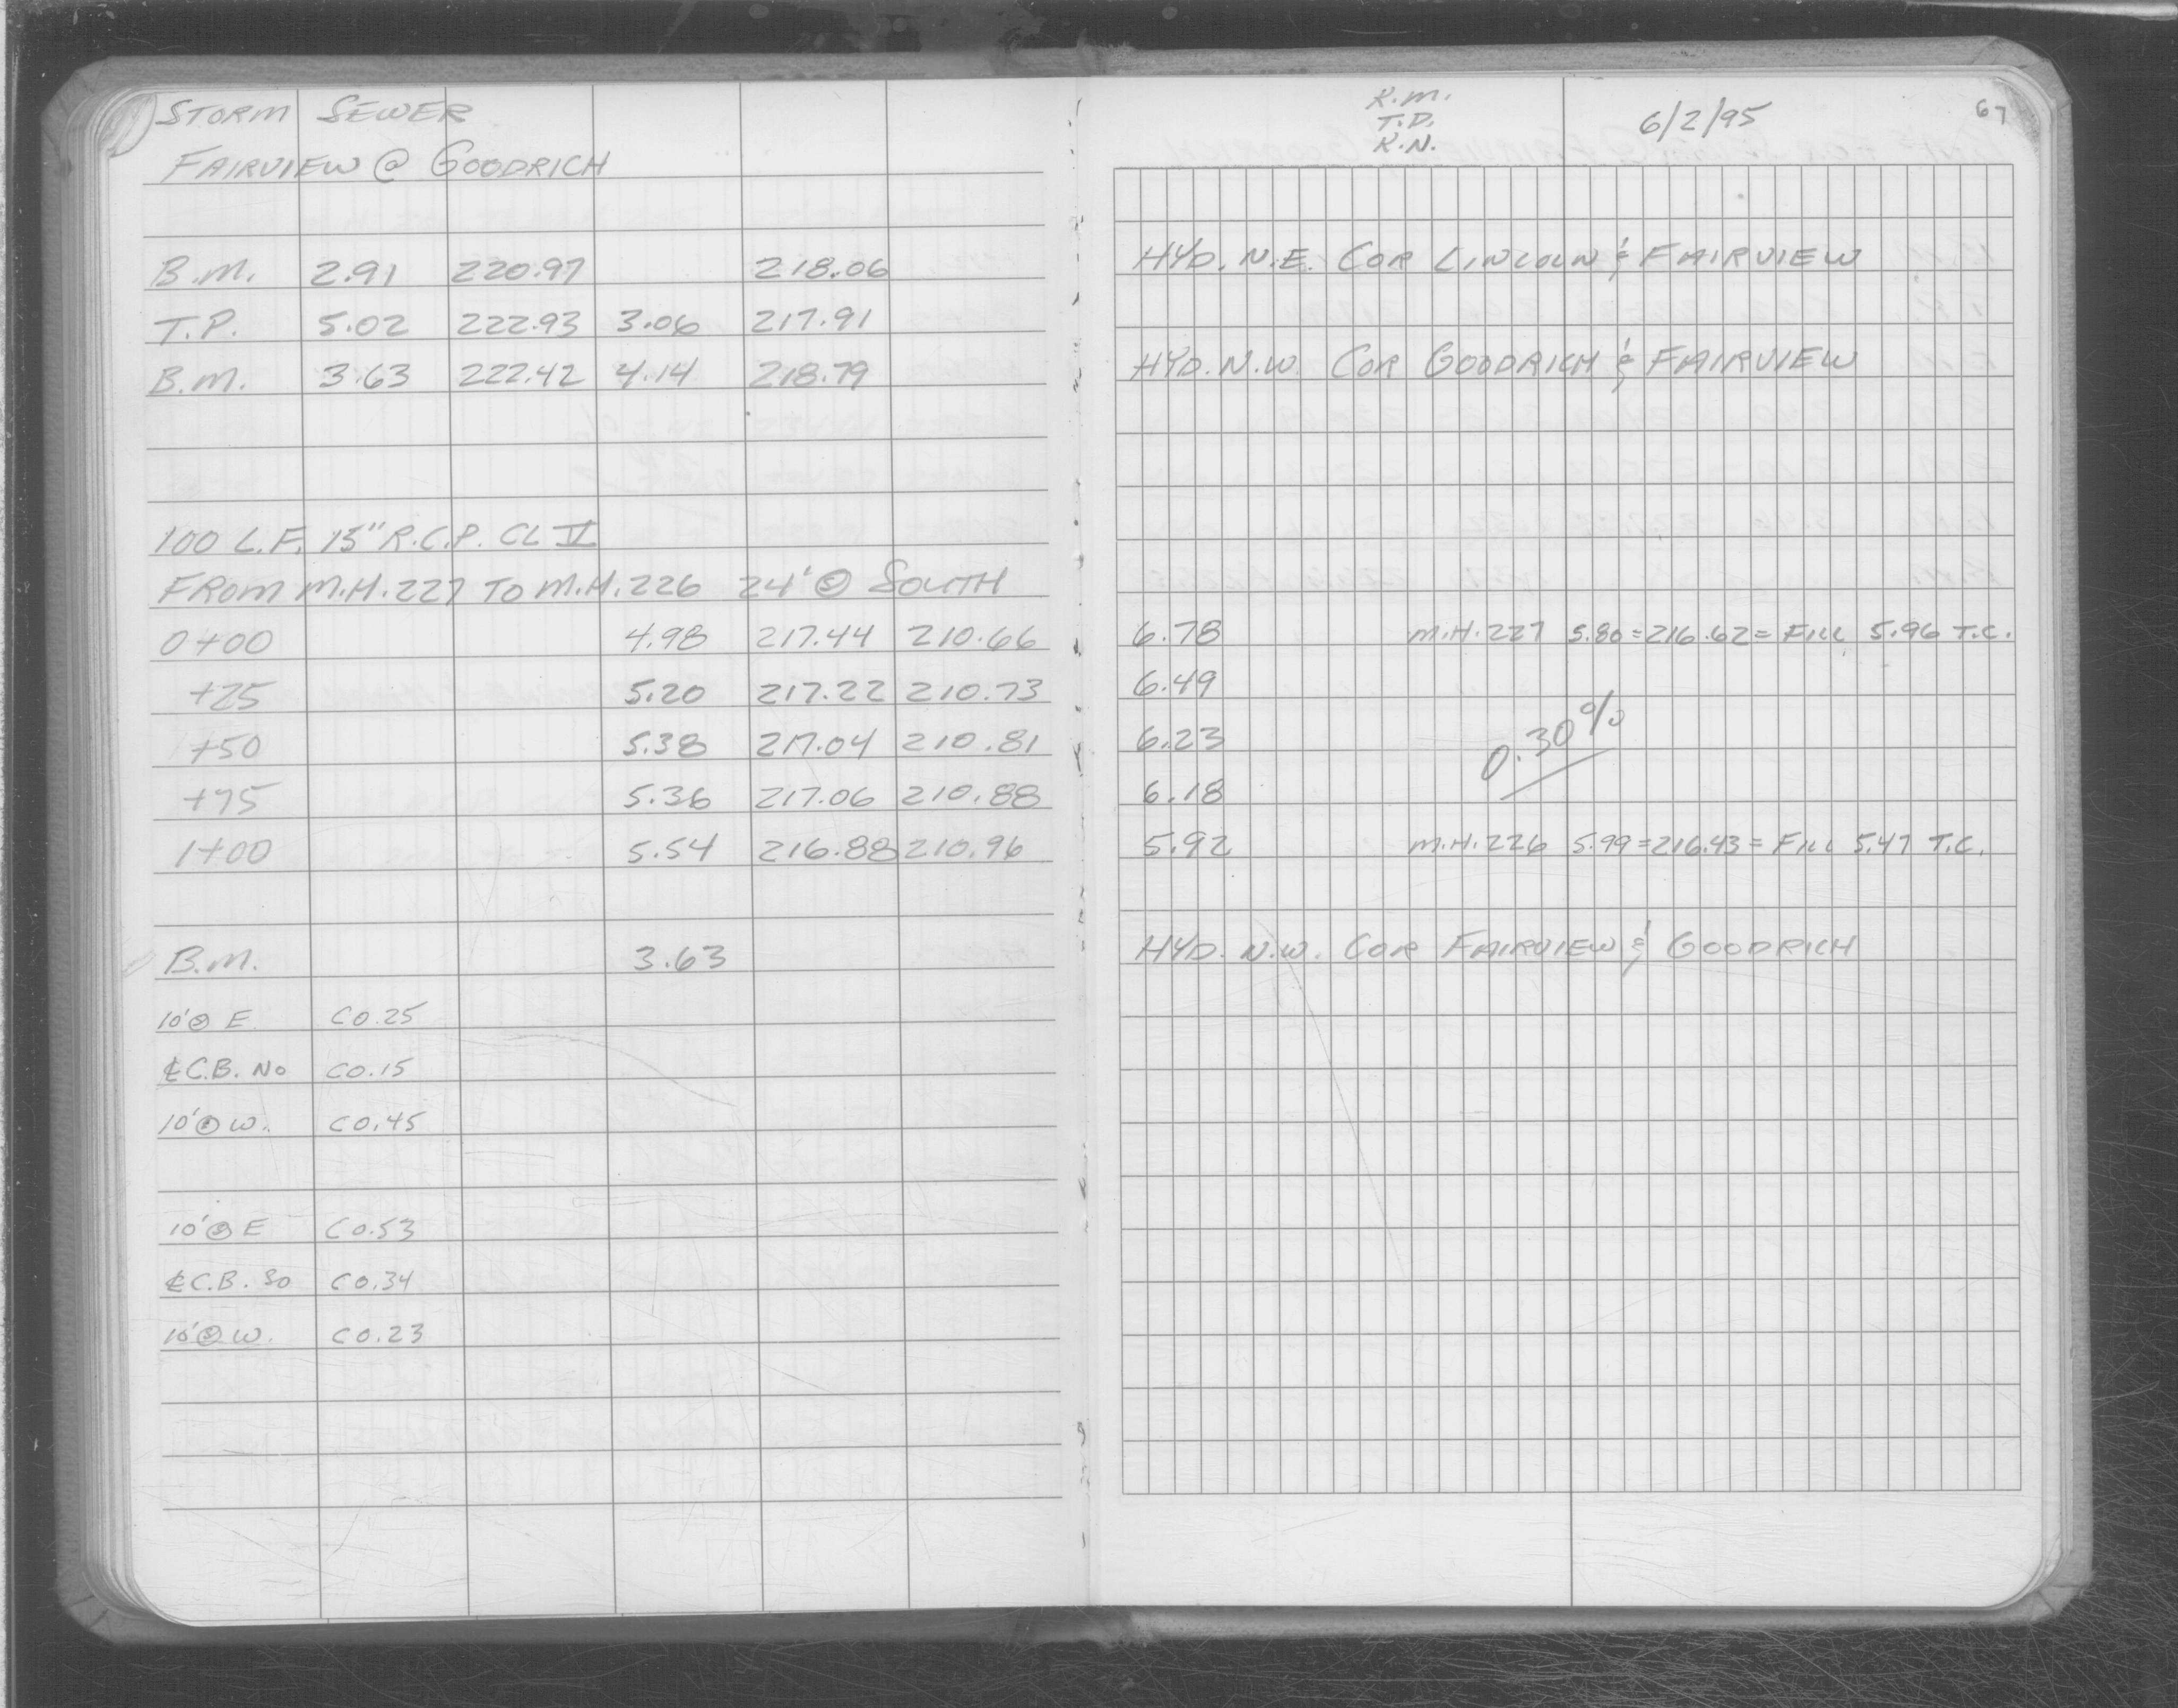 STORM SEWER
FAIRVIEW @ GOODRICH
B.M. 2.91 220.97 218.06
T.P. 5.02 222.93 3.06 217.91
B.M. 3.63 222.42 4.14 218.79
100 L.F. 15" R.C.P. CL V
FROM M.H. 227 TO M.H. 226 24' @ SOUTH
0+00 4.98 217.44 210.66
+25 5.20 217.22 210.73
+50 5.38 217.04 210.81
+75 5.36 217.06 210.88
1+00 5.54 216.88 210.96
B.M. 3.63
10' E C0.25
℄ C.B. No C0.15
10' W. C0.45
10' E C0.53
℄ C.B. So C0.34
10' W. C0.23
K.M.
T.D.
K.N.
6/2/95
67
HYD. N.E. COR LINCOLN & FAIRVIEW
HYD. N.W. COR GOODRICH & FAIRVIEW
6.78 M.H. 227 5.80 = 216.62 = FILL 5.96 T.C.
6.49
6.23 0.30%
6.18
5.92 M.H. 226 5.99 = 216.43 = FILL 5.47 T.C.
HYD. N.W. COR FAIRVIEW & GOODRICH